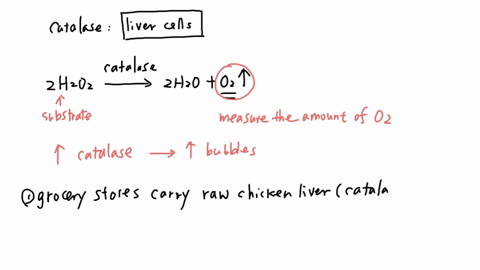 catalase: liver cells
catalase
2H2O2 ⟶ 2H2O + O2↑
substrate
measure the amount of O2
↑ catalase ⟶ ↑ bubbles
① grocery stores carry raw chicken liver (catala